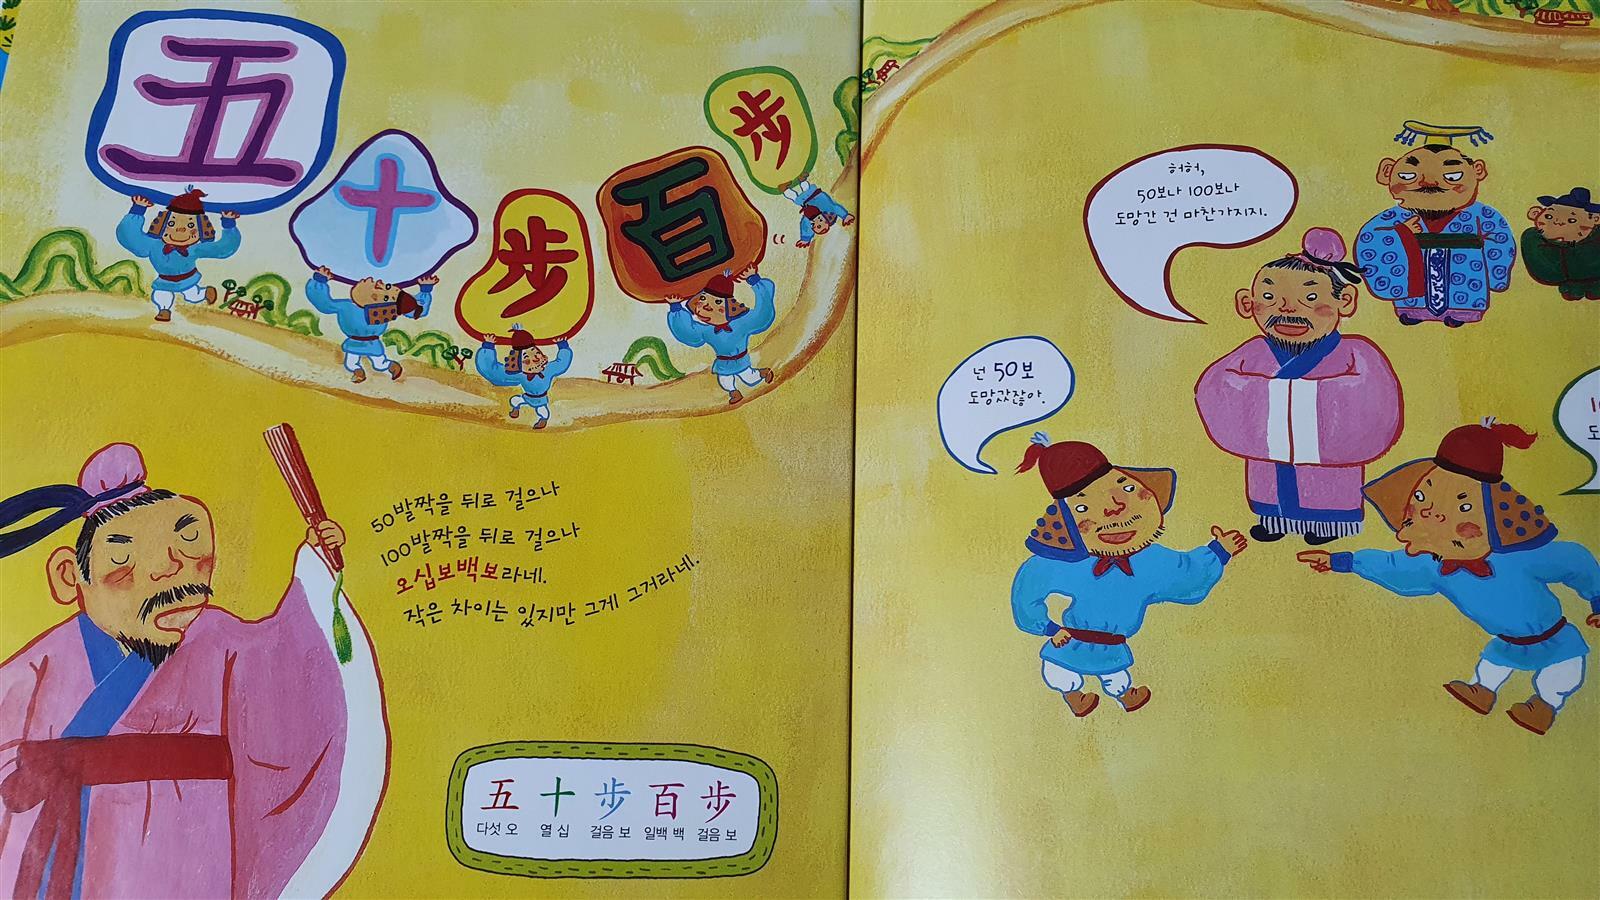 五
十
步
百
步
50발짝을 뒤로 걸으나
100발짝을 뒤로 걸으나
오십보백보라네.
작은 차이는 있지만 그게 그거라네.
五 十 步 百 步
다섯 오 열 십 걸음 보 일백 백 걸음 보
허허,
50보나 100보나
도망간 건 마찬가지지.
넌 50보
도망갔잖아.